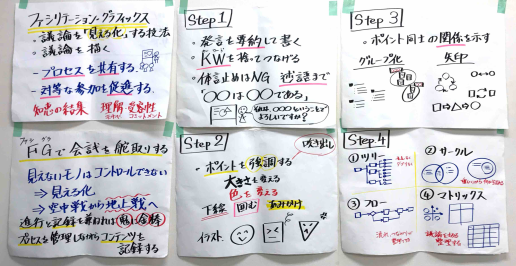 ファシリテーション・グラフィックス
・議論を「見える化」する技法
・議論を描く
-プロセスを共有する
-対等な参加を促進する
知恵の結集 理解 受容性
コミットメント
ファシ グラ
FGで会議を舵取りする
見えないモノはコントロールできない
⇒見える化
⇒空中戦から地上戦へ
進行と記録を兼ねれば
プロセスを管理しながらコンテンツを
記録する
Step1
・発言を要約して書く
・KWを捨ってつなげる
・体言止めはNG 述語まで
「〇〇は〇〇である」
それは、〇〇〇ということで
よろしいですか?
Step2
吹き出し
・ポイントを強調する
大きさを変える
色を変える
下線 囲む あみかけ
イラスト
Step3
・ポイント同士の関係を示す
グループ化 矢印
Step4
①ツリー
②サークル
③フロー
④マトリックス
整理する